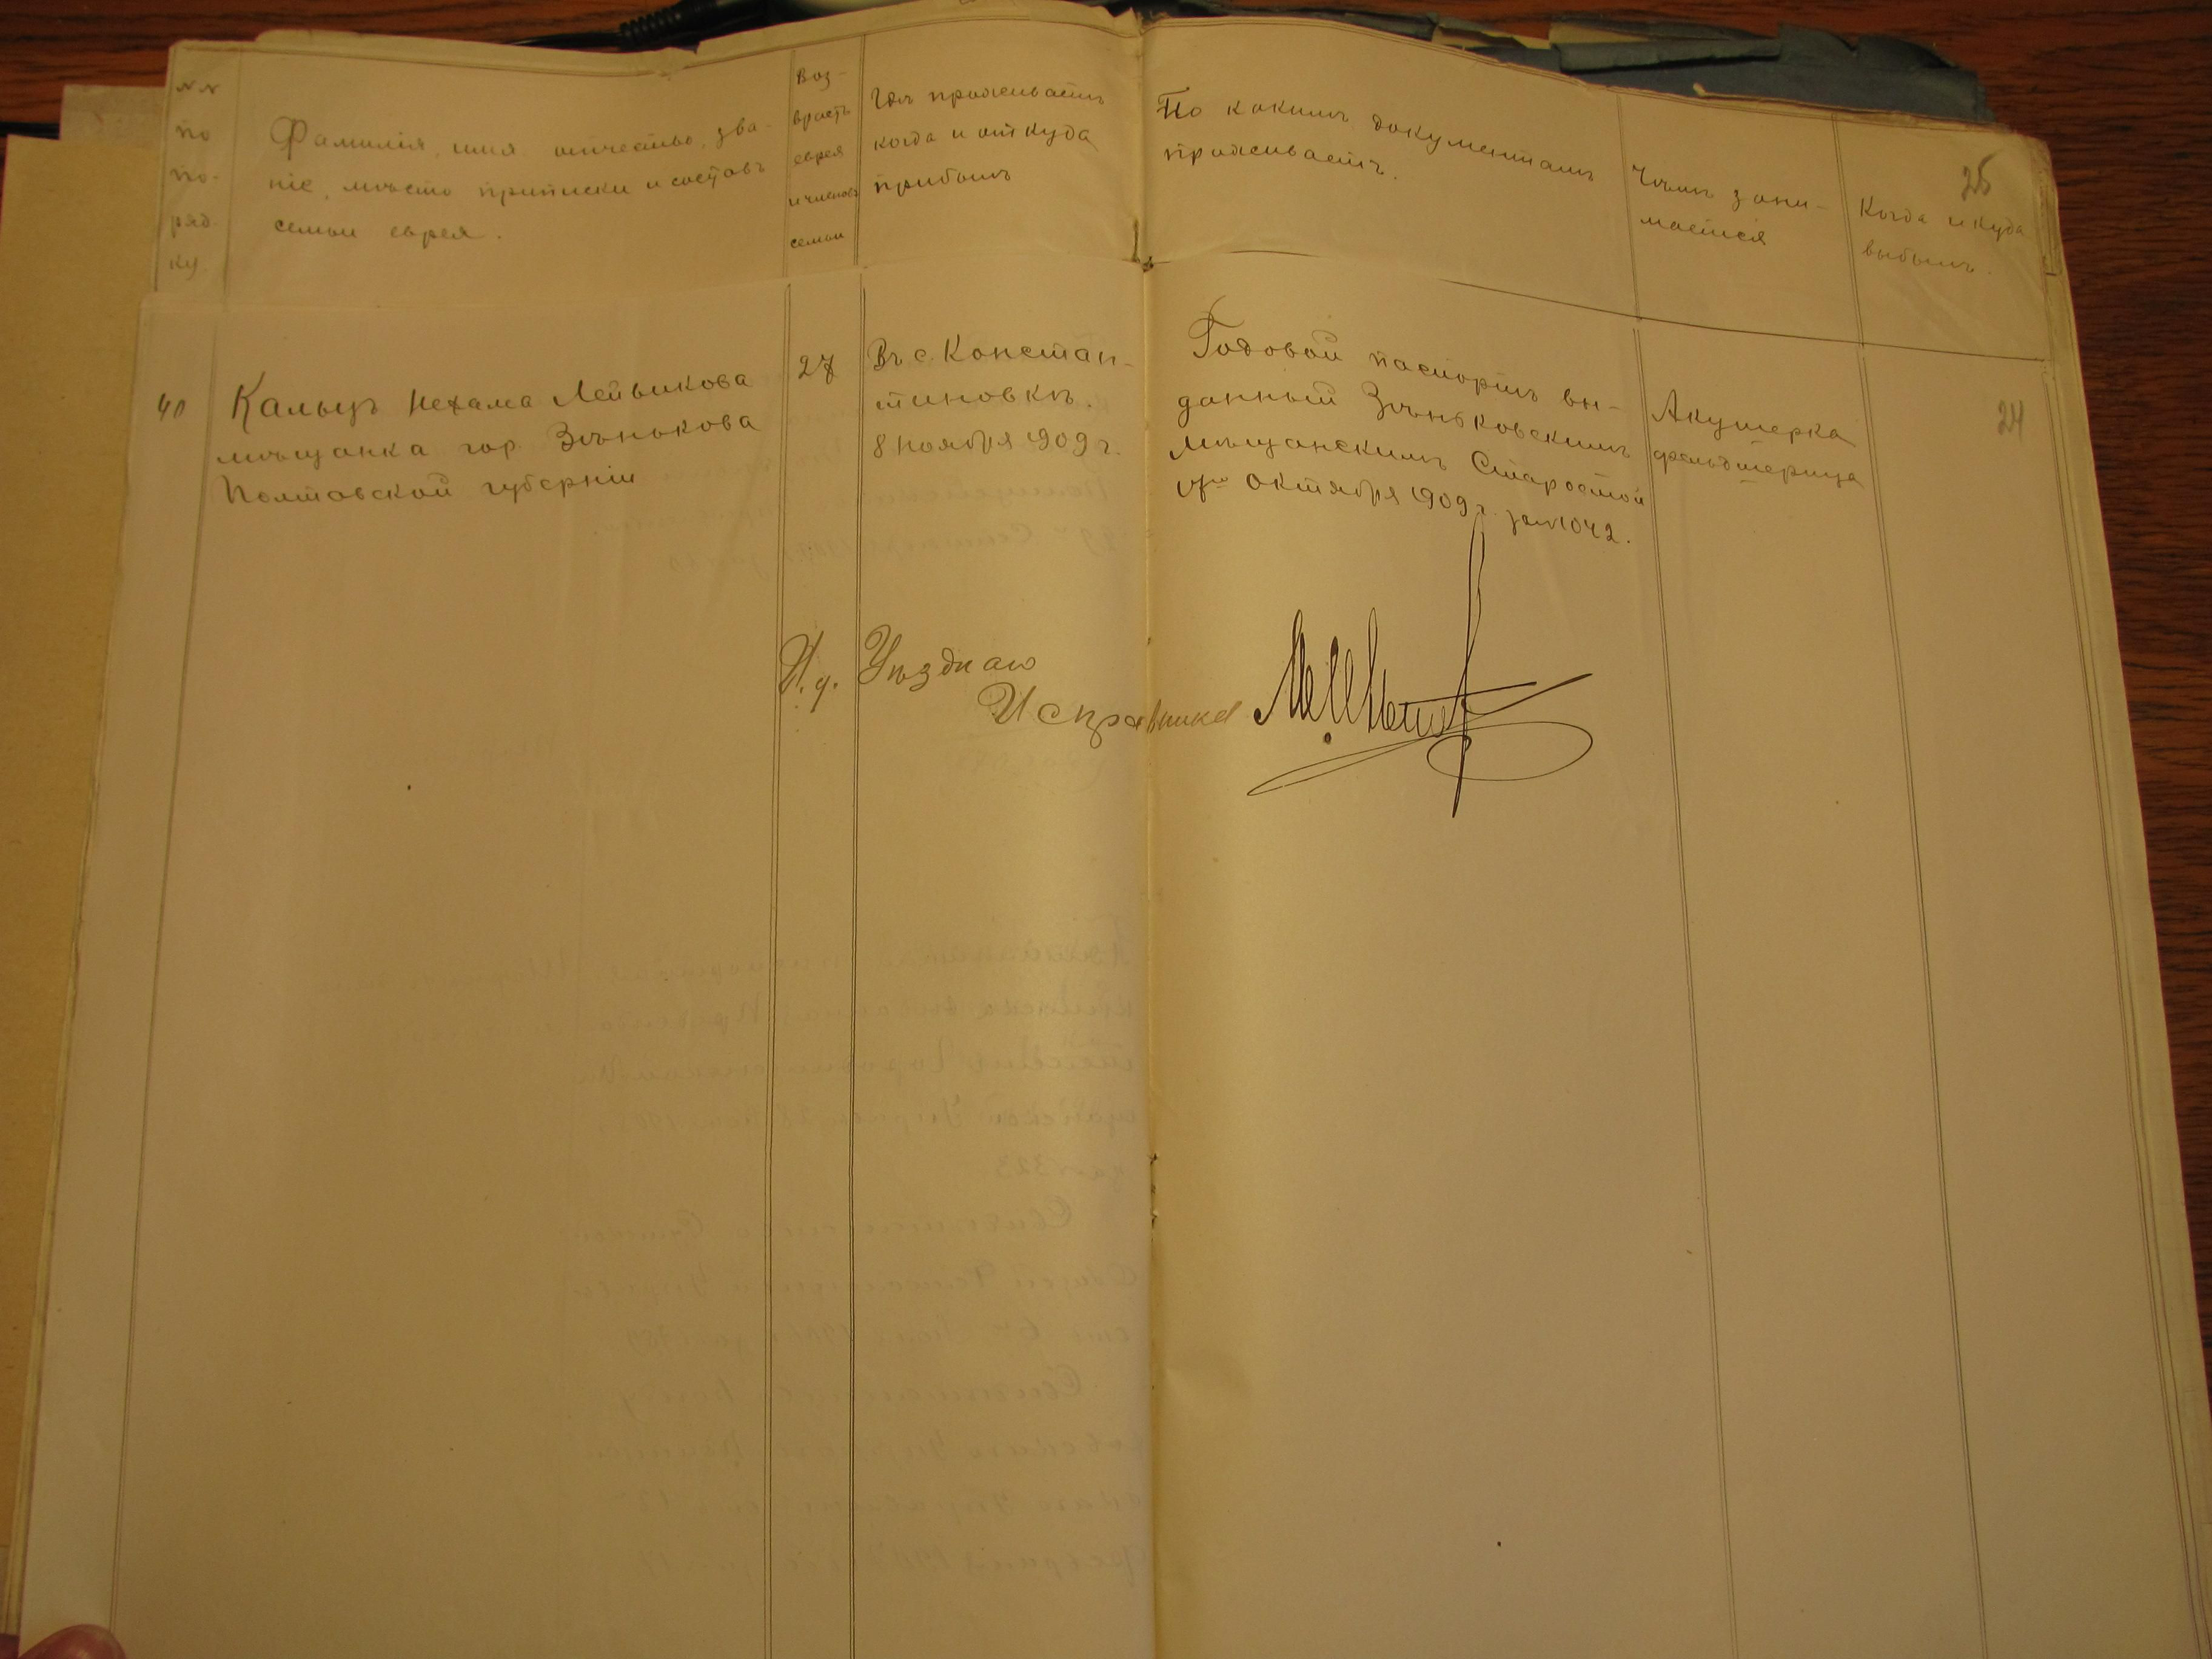 №№
по
по-
ряд
ку
Фамилія, имя отчество, зва-
ніе, мѣсто приписки и составъ
семьи еврея.
Воз-
врастъ
еврея
и членовъ
семьи
Гдѣ проживаетъ
когда и откуда
прибылъ
По какимъ документамъ
проживаетъ.
Чѣмъ зани-
мается
25
Когда и куда
выбылъ.
40
Кальцъ Нехама Лейвикова
мѣщанка гор. Зѣнькова
Полтавской губерніи
27
Въ с. Констан-
тиновкѣ.
8 ноября 1909 г.
Годовой паспортъ вы-
данный Зѣньковскимъ
Мѣщанскимъ Старостой
17го Октября 1909 г. за №1042.
Акушерка
фельдшерица
24
И. д. Уѣзднаго
Исправника